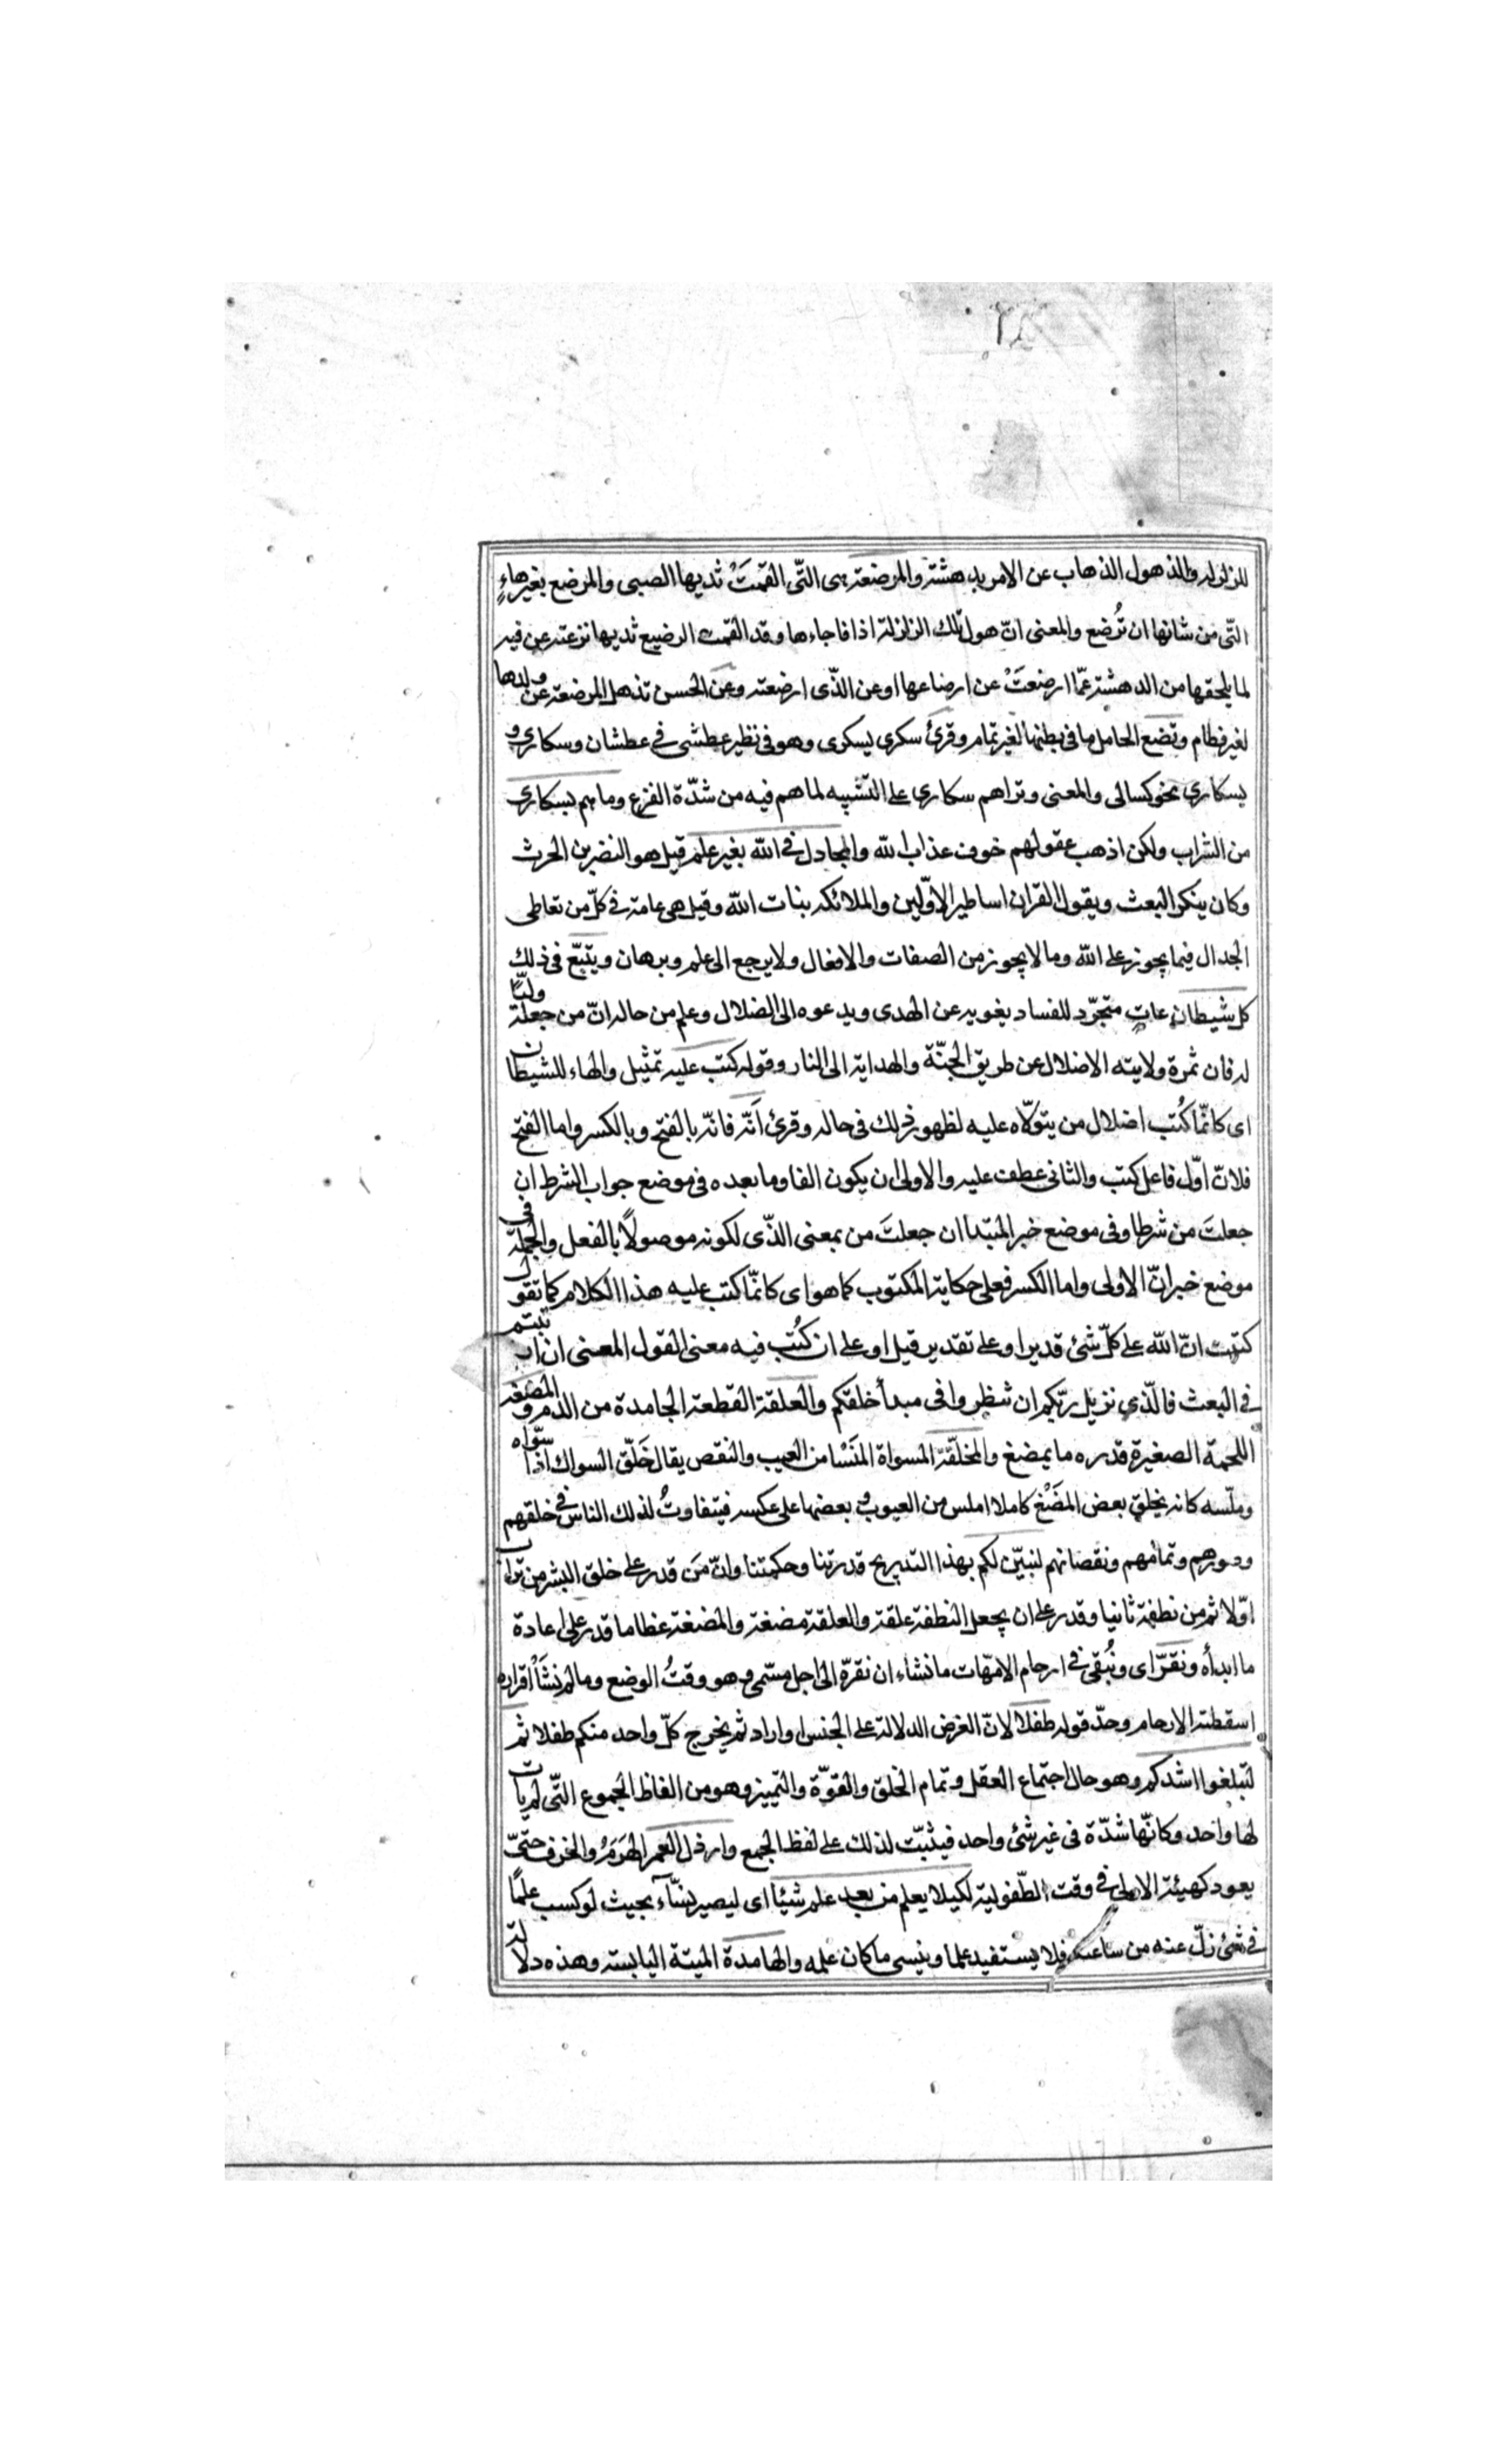 للزلزلة والذهول الذهاب عن الامر بدهشة والمرضعة هى التّى القمَتْ ثديها الصبى والمرضع بغير هاءٍ
التّى من شانها ان تُرضع والمعنى انّ هول تلك الزلزلة اذا فاجاءها وقد القمت الرضيع ثديها نزعته عن فيه
لما يلحقها من الدهشة عمّا ارضعَتْ عن ارضاعها او عن الذّى ارضعته وعن الحسن تذهل المرضعة عن ولدها
لغير فطام وتضع الحامل ما فى بطنها لغير تمام وقرئ سكرى بسكرى وهو فى نظير عطشى فى عطشان وسكارى و
بسكارى نحو كسالى والمعنى وتراهم سكارى على التشبيه لما هم فيه من شدّة الفزع وما هم بسكارى
من الشراب ولكن اذهب عقولهم خوف عذاب الله والمجادل فى الله بغير علم قيل هو النضر بن الحرث
وكان ينكر البعث ويقول القران اساطير الاوّلين والملائكه بنات الله وقيل هى عامة فى كلّ من تعاطى
الجدال فيما يجوز على الله وما لا يجوز من الصفات والافعال ولا يرجع الى علم وبرهان ويتبّع فى ذلك
كل شيطان عاتٍ متجرّد للفساد يغويه عن الهدى ويدعوه الى الضلال وعلم من حاله انّ من جعله وليّا
له فان ثمرة ولايته الاضلال عن طريق الجنّة والهداية الى النار وقوله كتب عليه تمثيل والهاء للشيطان
اى كانّما كُتب اضلال من يتولّاه عليه لظهور ذلك فى حاله وقرئ اَنّه فانّه بالفتح وبالكسر واما الفتح
فلانّ اوّل فاعل كتب والثانى عطف عليه والاولى ان يكون الفا وما بعده فى موضع جواب الشرط ان
جعلتَ من شرطا وفى موضع خبر المبتدا ان جعلتَ من بمعنى الذّى لكونه موصولًا بالفعل والجملة فى
موضع خبر انّ الاولى واما الكسر فعلى حكاية المكتوب كما هو اى كانّما كتب عليه هذا الكلام كما تقول
كتبت انّ الله على كلّ شئ قدير او على تقدير قيل او على ان كُتب فيه معنى القول المعنى ان ارتبتم
فى البعث فالّذى نزيل ربّكم ان تنظروا فى مبدأ خلقكم والعلقة القطعة الجامدة من الدم والمضغة
اللحمة الصغيرة قدره ما يمضغ والمخلّقة المسواة المَلْسا من العيب والنقص يقال خَلّق السواك اذا سوّاه
وملّسه كانه يخلق بعض المضَغ كاملا املس من العيوب وبعضها على عكسه فيتفاوتُ لذلك الناس فى خلقهم
وصورهم وتمامهم ونقصانهم لنبيّن لكم بهذا التدريج قدرتنا وحكمتنا وانّ مَن قدر على خلق البشر من تراب
اوّلا ثم من نطفة ثانيا وقدر على ان يجعل النطفة علقة والعلقة مضغة والمضغة عظاما قدر على اعادة
ما ابدأه ونقرّ اى ونُبقى فى ارحام الامّهات ما نشاء ان نقرّه الى اجل مسّمى وهو وقتُ الوضع وما لم نشَأْ اقراره
اسقطته الارحام وحّد قوله طفلا لانّ الغرض الدلالة على الجنس او اراد ثم يخرج كلّ واحد منكم طفلا ثم
لتبلغوا اشدكم وهو حال اجتماع العقل وتمام الخلق والقوّة والتمييز وهو من الفاظ الجموع التّى لم يات
لها واحد وكانّها شدّة فى غير شئ واحد فيثبّت لذلك على لفظ الجمع وارذل العمر الهَرَمُ والخرف حتّى
يعود كهيئة الاولى فى وقت الطّفولية لكيلا يعلم من بعد علم شيئا اى ليصير نسّآء بحيث لو كسب علمًا
فى شئ زلّ عنه من ساعته فلا يستفيد علما وينسى ما كان علمه والهامدة الميتة اليابسة وهذه دلالة